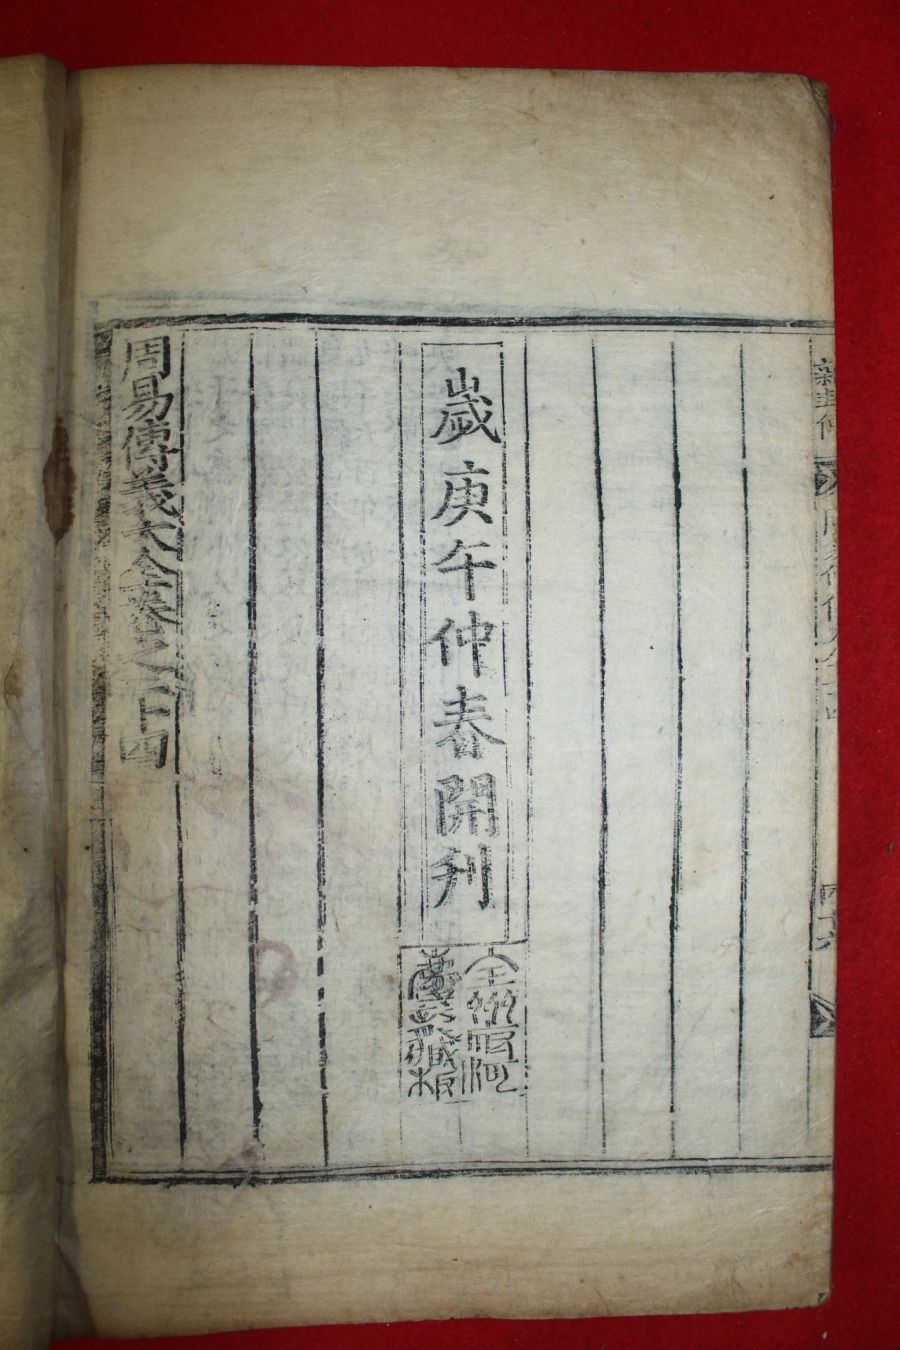 歲庚午仲春開刊
全州河慶龍藏板
周易傳義大全卷之二十四